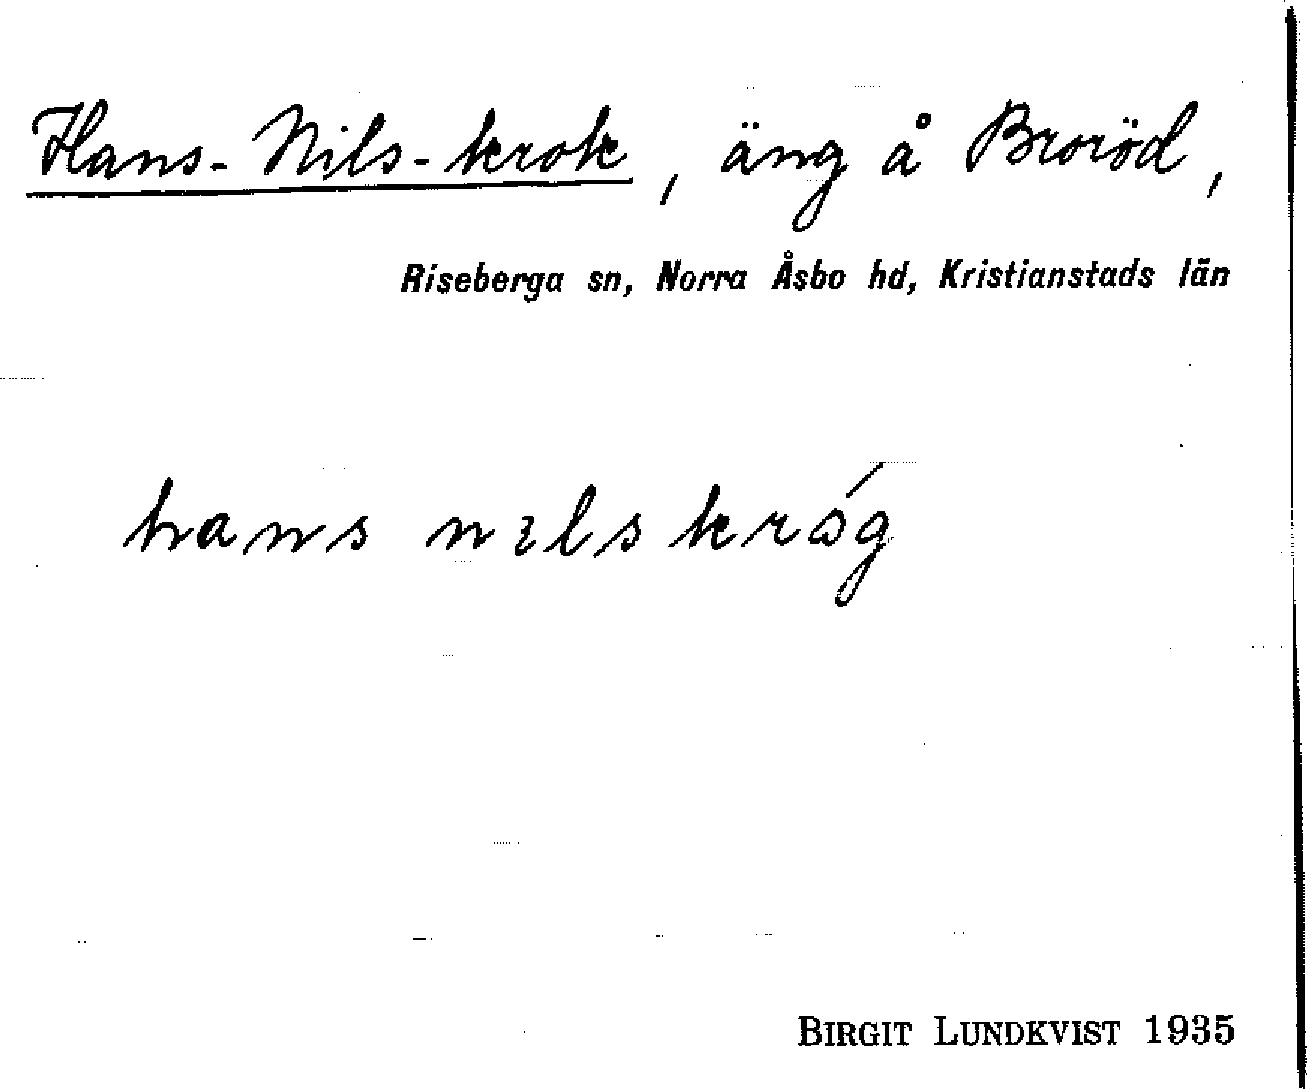 Hans-Nils-krok, äng å Broröd,
Riseberga sn, Norra Åsbo hd, Kristianstads län
hans nɩls krǿg
BIRGIT LUNDKVIST 1935